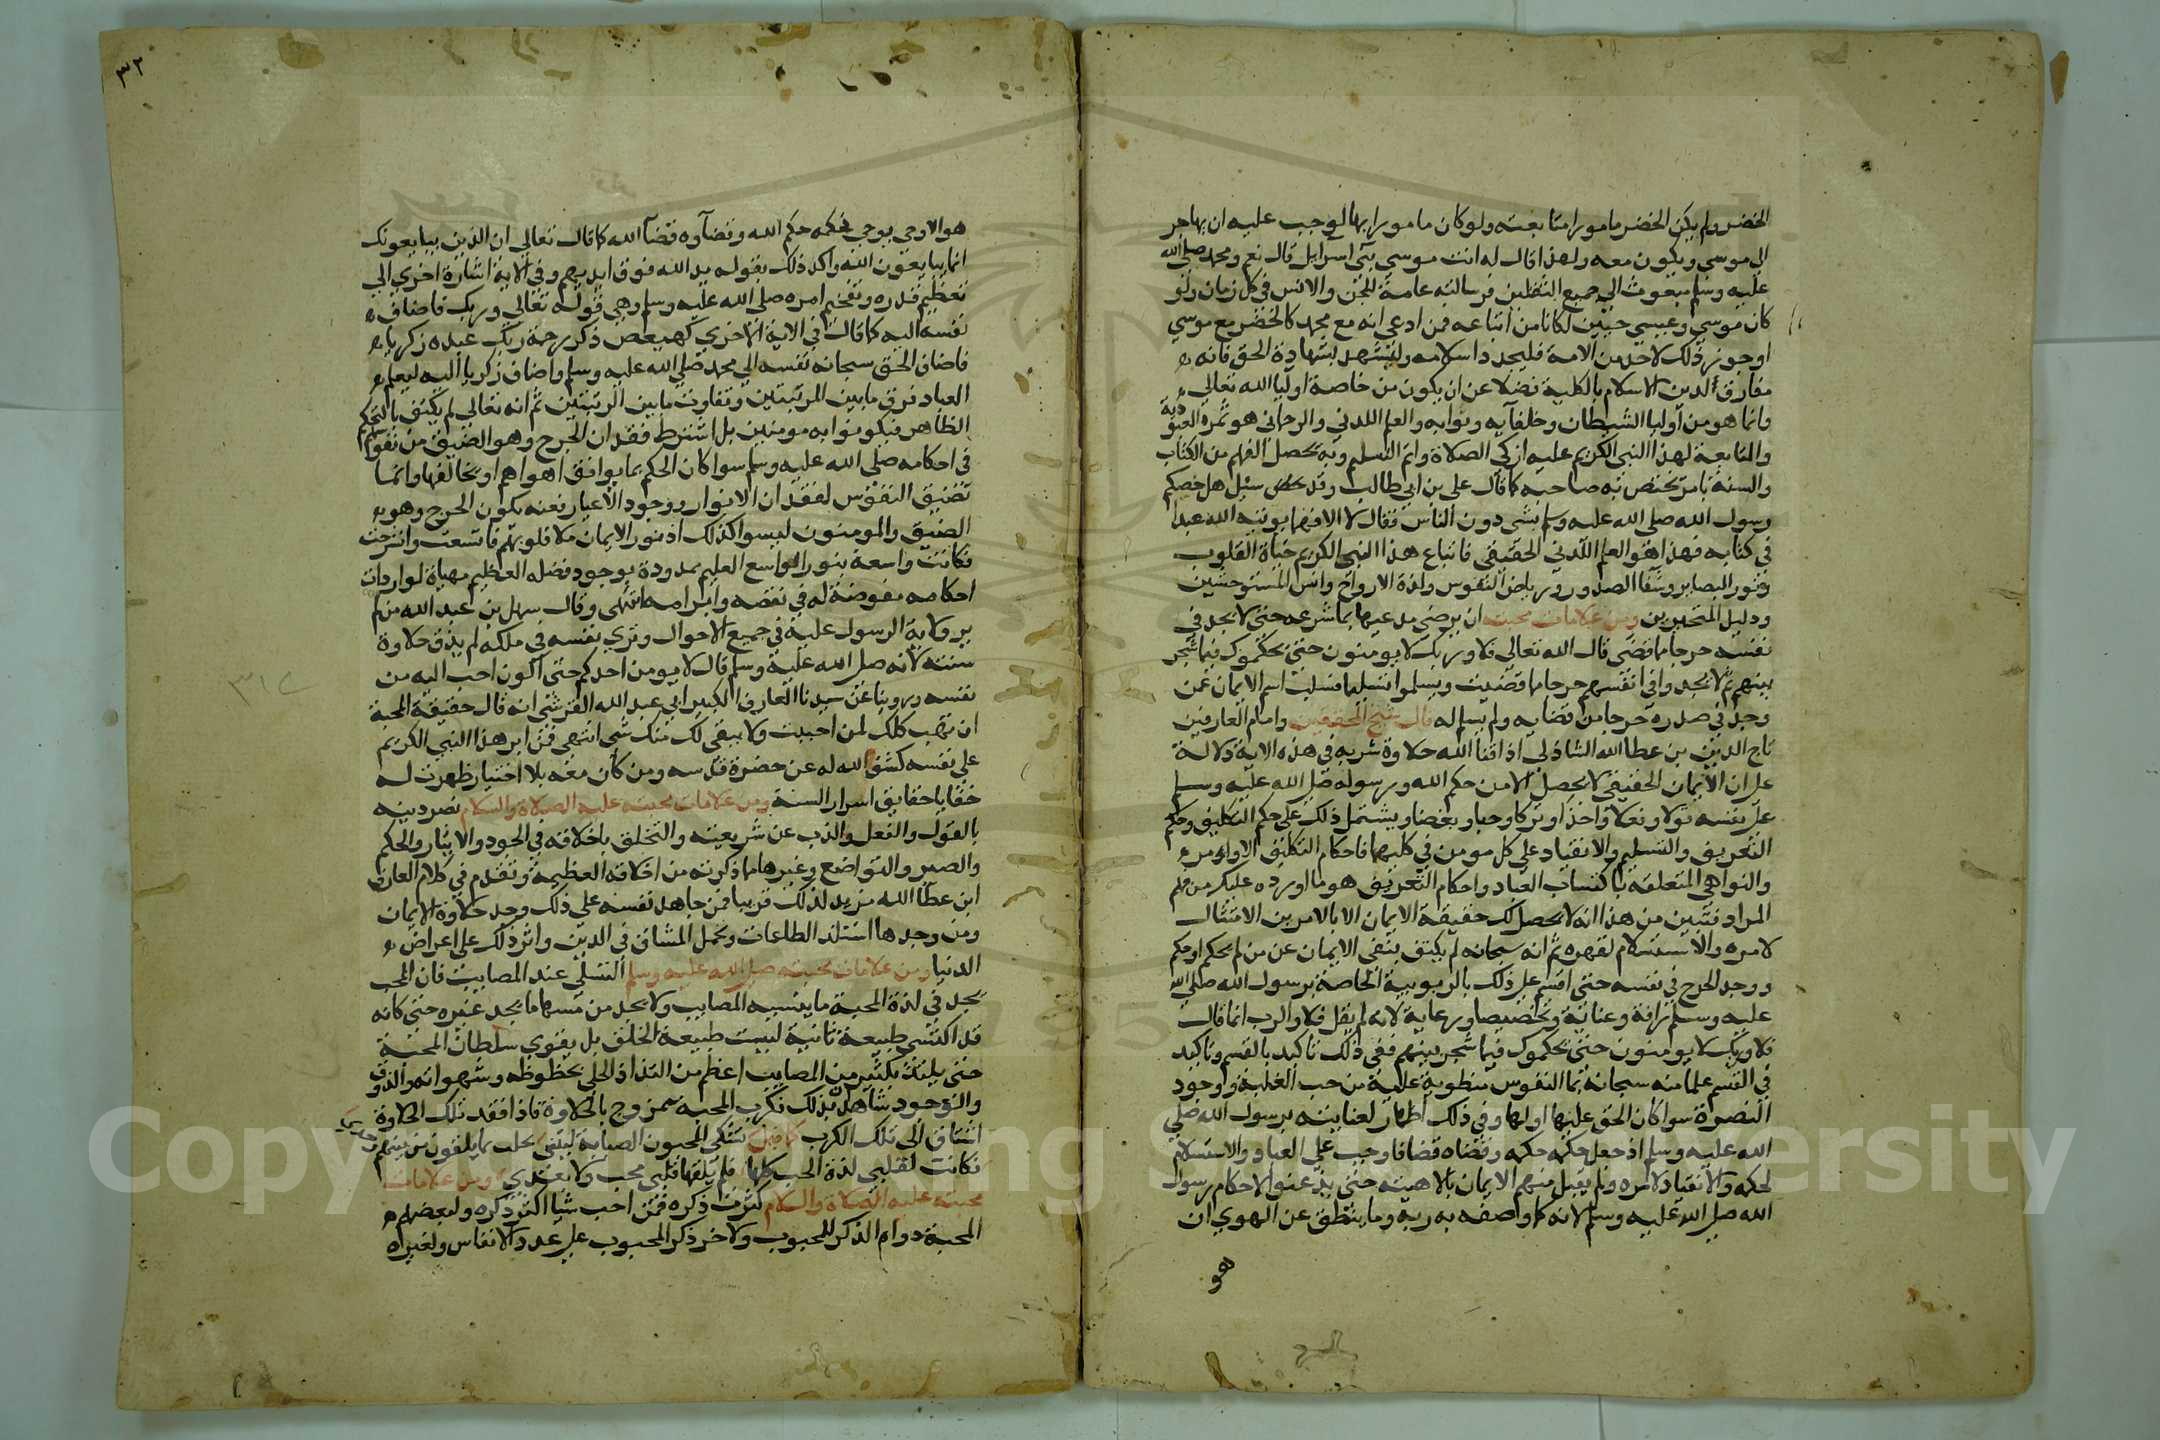 الخضر ولم يكن الخضر مامورا متابعته ولو كان مامورا بها لوجب عليه ان يهاجر
الي موسي ويكون معه ولهذا قال له انت موسي بني اسرايل قال نعم ومحمد صلي الله
عليه وسلم مبعوث الي جميع الثقلين فرسالته عامة للجن والانس في كل زمان ولو
كان موسي وعيسي حيين لكانا من اتباعه فمن ادعي انه مع محمد كالخضر مع موسي
او جوز ذلك لاحد من الامة فليجدد اسلامه وليشهد بشهادة الحق فانه
مفارق لدين الاسلام بالكلية فضلا عن ان يكون من خاصة اوليا الله تعالي
وانما هو من اوليا الشيطان وخلفايه ونوابه والعلم اللدني والرحماني هو ثمرة العبودية
والمتابعة لهذا النبي الكريم عليه ازكي الصلاة واتم التسليم وبه يحصل الفهم من الكتاب
والسنة بامر يختص به صاحبه كما قال علي بن ابي طالب وقد سئل هل خصكم
رسول الله صلي الله عليه وسلم بشي دون الناس فقال لا الا فهما يوتيه الله عبدا
في كتابه فهذا هو العلم اللدني الحقيقي فاتباع هذا النبي الكريم حياة القلوب
ونور البصاير وشفا الصدور ورياض النفوس ولذة الارواح وانس المستوحشين
ودليل المتحيرين ومن علامات محبته ان يرضي مدعيها بما شرعه حتي لا يجد في
نفسه حرجا مما قضي قال الله تعالي فلا وربك لا يومنون حتي يحكموك فيما شجر
بينهم ثم لا يجدوا في انفسهم حرجا مما قضيت ويسلموا تسليما فسلب اسم الايمان عمن
وجد في صدره حرجا من قضايه ولم يسلم له قال شيخ المحققين وامام العارفين
تاج الدين بن عطا الله الشاذلي اذاقنا الله حلاوة مشربه في هذه الاية دلالة
علي ان الايمان الحقيقي لا يحصل الا لمن حكم الله ورسوله صلي الله عليه وسلم
علي نفسه قولا وفعلا واخذا وتركا وحبا وبغضا ويشتمل ذلك علي حكم التكليف وحكم
التعريف والتسليم والانقياد علي كل مومن في كليهما فاحكام التكليف الاوامر
والنواهي المتعلقة باكتساب العباد واحكام التعريف هو ما اورده عليك من فهم
المراد فتبين من هذا انه لا يحصل لك حقيقة الايمان الا بالامرين الامتثال
لامره والاستسلام لقهره ثم انه سبحانه لم يكتف بنفي الايمان عن من لم يحكم او حكم
ووجد الحرج في نفسه حتي اقسم علي ذلك بالربوبية الخاصة برسول الله صلي الله
عليه وسلم رافة وعناية وتخصيصا ورعاية لانه لم يقل فلا والرب انما قال
فلا وربك لا يومنون حتي يحكموك فيما شجر بينهم ففي ذلك تاكيد بالقسم وتاكيد
في القسم علما منه سبحانه بما النفوس منطوية عليه من حب الغلبة ووجود
النصرة سوا كان الحق عليها او لها وفي ذلك اظهار لعنايته برسول الله صلي
الله عليه وسلم اذ جعل حكمه حكمه وقضاه قضاه فاوجب علي العباد والاستسلام
لحكمه والانقياد لامره ولم يقبل منهم الايمان بالاهيته حتي يذعنوا لاحكام رسول
الله صلي الله عليه وسلم لانه كما وصفه به ربه وما ينطق عن الهوي ان
هو
٣٢
هو الا وحي يوحي فحكمه حكم الله وقضاوه قضا الله كما قال تعالي ان الذين يبايعونك
انما يبايعون الله واكد ذلك بقوله يد الله فوق ايديهم وفي الاية اشارة اخري الي
تعظيم قدره وتفخيم امره صلي الله عليه وسلم وهي قوله تعالي وربك فاضاف
نفسه اليه كما قال في الاية الاخري كهيعص ذكر رحمة ربك عبده زكريا
فاضاف الحق سبحانه نفسه الي محمد صلي الله عليه وسلم واضاف زكريا اليه ليعلم
العباد فرق ما بين المرتبتين وتفاوت ما بين الرتبتين ثم انه تعالي لم يكتف بالتحكيم
الظاهر فيكونوا به مومنين بل اشترط فقدان الحرج وهو الضيق من نفوسهم
في احكامه صلي الله عليه وسلم سوا كان الحكم بما يوافق اهواهم او يخالفها وانما
تضيق النفوس لفقدان الانوار ووجود الاغيار فعنه يكون الحرج وهو
الضيق والمومنون ليسوا كذلك اذ نور الايمان ملا قلوبهم فاتسعت وانشرحت
فكانت واسعة بنور الواسع العليم ممدودة بوجود فضله العظيم مهياة لواردات
احكامه مفوضة له في نقضه وابرامه انتهي وقال سهل بن عبد الله من لم
ير ولاية الرسول عليه في جميع الاحوال ويري نفسه في ملكه لم يذق حلاوة
سنته لانه صلي الله عليه وسلم قال لا يومن احدكم حتي اكون احب اليه من
نفسه وروينا عن سيدنا العارف الكبير ابي عبد الله القرشي انه قال حقيقة المحبة
ان تهب كلك لمن احببت ولا يبقي لك منك شي انتهي فمن اثر هذا النبي الكريم
علي نفسه كشف الله له عن حضرة قدسه ومن كان معه بلا اختيار ظهرت له
خفايا حقايق اسرار السنة ومن علامات محبته عليه الصلاة والسلام نصر دينه
بالقول والفعل والذب عن شريعته والتخلق باخلاقه في الجود والايثار والحلم
والصبر والتواضع وغيرها مما ذكرته من اخلاقه العظيمة وتقدم في كلام العارف
ابن عطا الله مزيد لذلك قريبا فمن جاهد نفسه علي ذلك وجد حلاوة الايمان
ومن وجدها استلذ الطاعات وتحمل المشاق في الدين واثر ذلك علي اعراض
الدنيا ومن علامات محبته صلي الله عليه وسلم التسلي عند المصايب فان المحب
يجد في لذة المحبة ما ينسيه المصايب ولا يجد من مسها ما يجد غيره حتي كانه
قد اكتسي طبيعة ثانية ليست طبيعة الخلق بل يقوي سلطان المحبة
حتي يلتذ بكثير من المصايب اعظم من التذاذ الخلي بحظوظه وشهواته والذوق
والوجود شاهد بذلك فكرب المحبة ممزوج بالحلاوة فاذا فقد تلك الحلاوة
اشتاق الي تلك الكرب كما قيل تشكي المحبون الصبابة ليتني تحملت بما يلقون من بينهم
فكانت لقلبي لذة الحب كلها فلم يلقها قبلي محب ولا بعدي ومن علامات
محبته عليه الصلاة والسلام كثرت ذكره فمن احب شيا اكثر ذكره ولبعضهم
المحبة دوام الذكر للمحبوب ولاخر ذكر المحبوب علي عدد الانفاس ولغيره